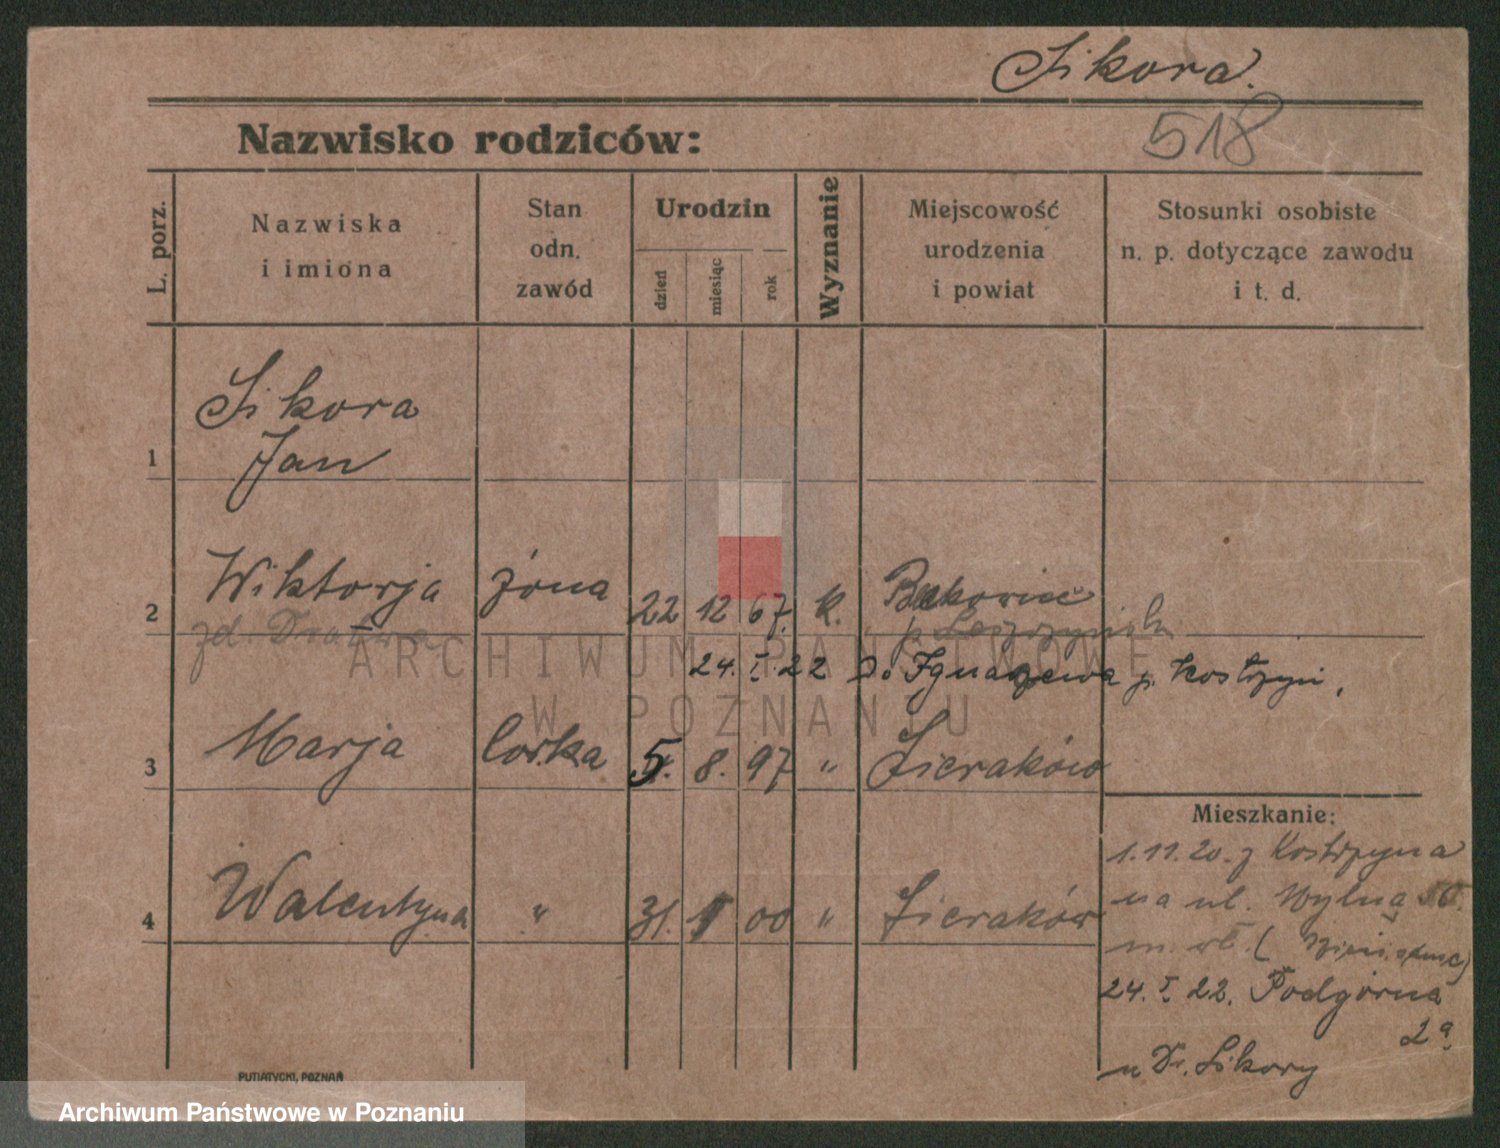 Sikora.
518
Nazwisko rodziców:
L. porz.
Nazwiska
i imiona
Stan
odn.
zawód
Urodzin
dzień
miesiąc
rok
Wyznanie
Miejscowość
urodzenia
i powiat
Stosunki osobiste
n. p. dotyczące zawodu
i t. d.
Sikora
1 Jan
2 Wiktorja żona 22 12 67. k.
24. I. 22 Do Ignacewa p. Kostrzyn,
3 Marja córka 5. 8. 97 " Sieraków
Mieszkanie:
1.11.20. z Kostrzyna
na ul. Wylną
4 Walentyna " 31. 00 " Sieraków
24. I. 22. Podgórna
2a
u Dr. Sikory
PUTIATYCKI, POZNAŃ
ARCHIWUM PAŃSTWOWE
W POZNANIU
Archiwum Państwowe w Poznaniu